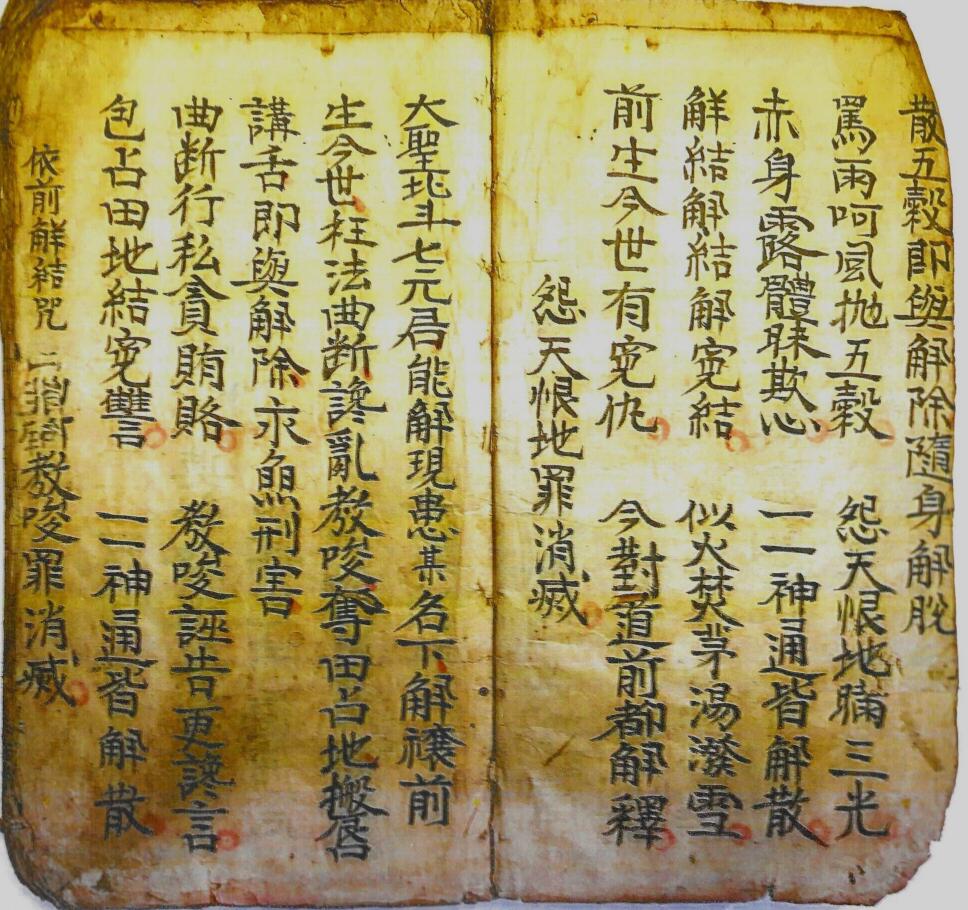 散五穀即與解除隨身解脫
罵雨呵風抛五穀　怨天恨地瞞三光
赤身露體昧欺心　一一神通皆解散
解結解結解寃結　似火焚茅湯潑雪
前生今世有寃仇　今對道前都解釋
怨天恨地罪消滅
大聖北斗七元君能解現患某名下解禳前
生今世枉法曲断讒亂教唆奪田占地搬唇
講舌即與解除永無刑害
曲断行私貪賄賂　教唆誣告更讒言
包占田地結寃讐　一一神通皆解散
依前解結咒　教唆罪消滅